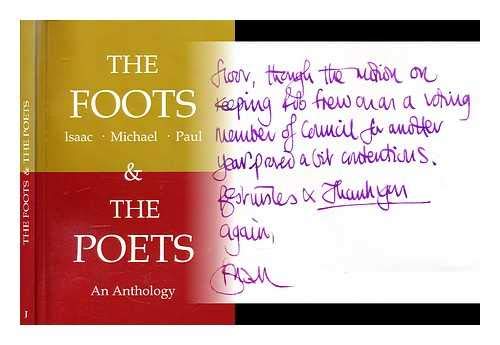 THE FOOTS & THE POETS
J
THE
FOOTS
Isaac · Michael · Paul
&
THE
POETS
An Anthology
floor, though the motion on
keeping Rob Frew on as a voting
member of Council for another
year proved a bit contentious.
Best wishes & Thank you
again,